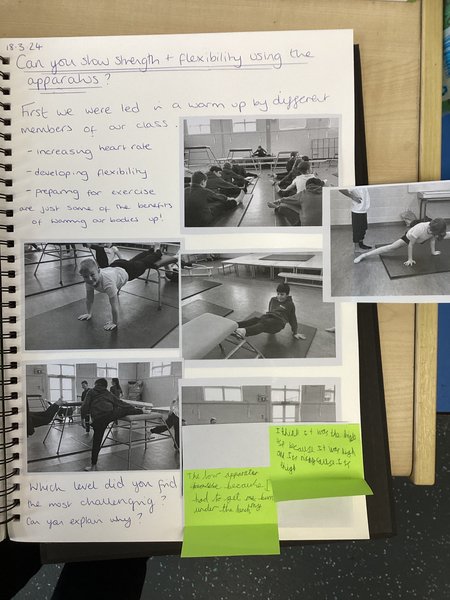 18.3.24
Can you show strength + flexibility using the
apparatus?
First we were led in a warm up by different
members of our class.
- increasing heart rate
- developing flexibility
- preparing for exercise
are just some of the benefits
of warming our bodies up!
Which level did you find
the most challenging?
Can you explain why?
The low apparatus
because because I
had to get me bum
under the bench
I think it was the high
because it was high